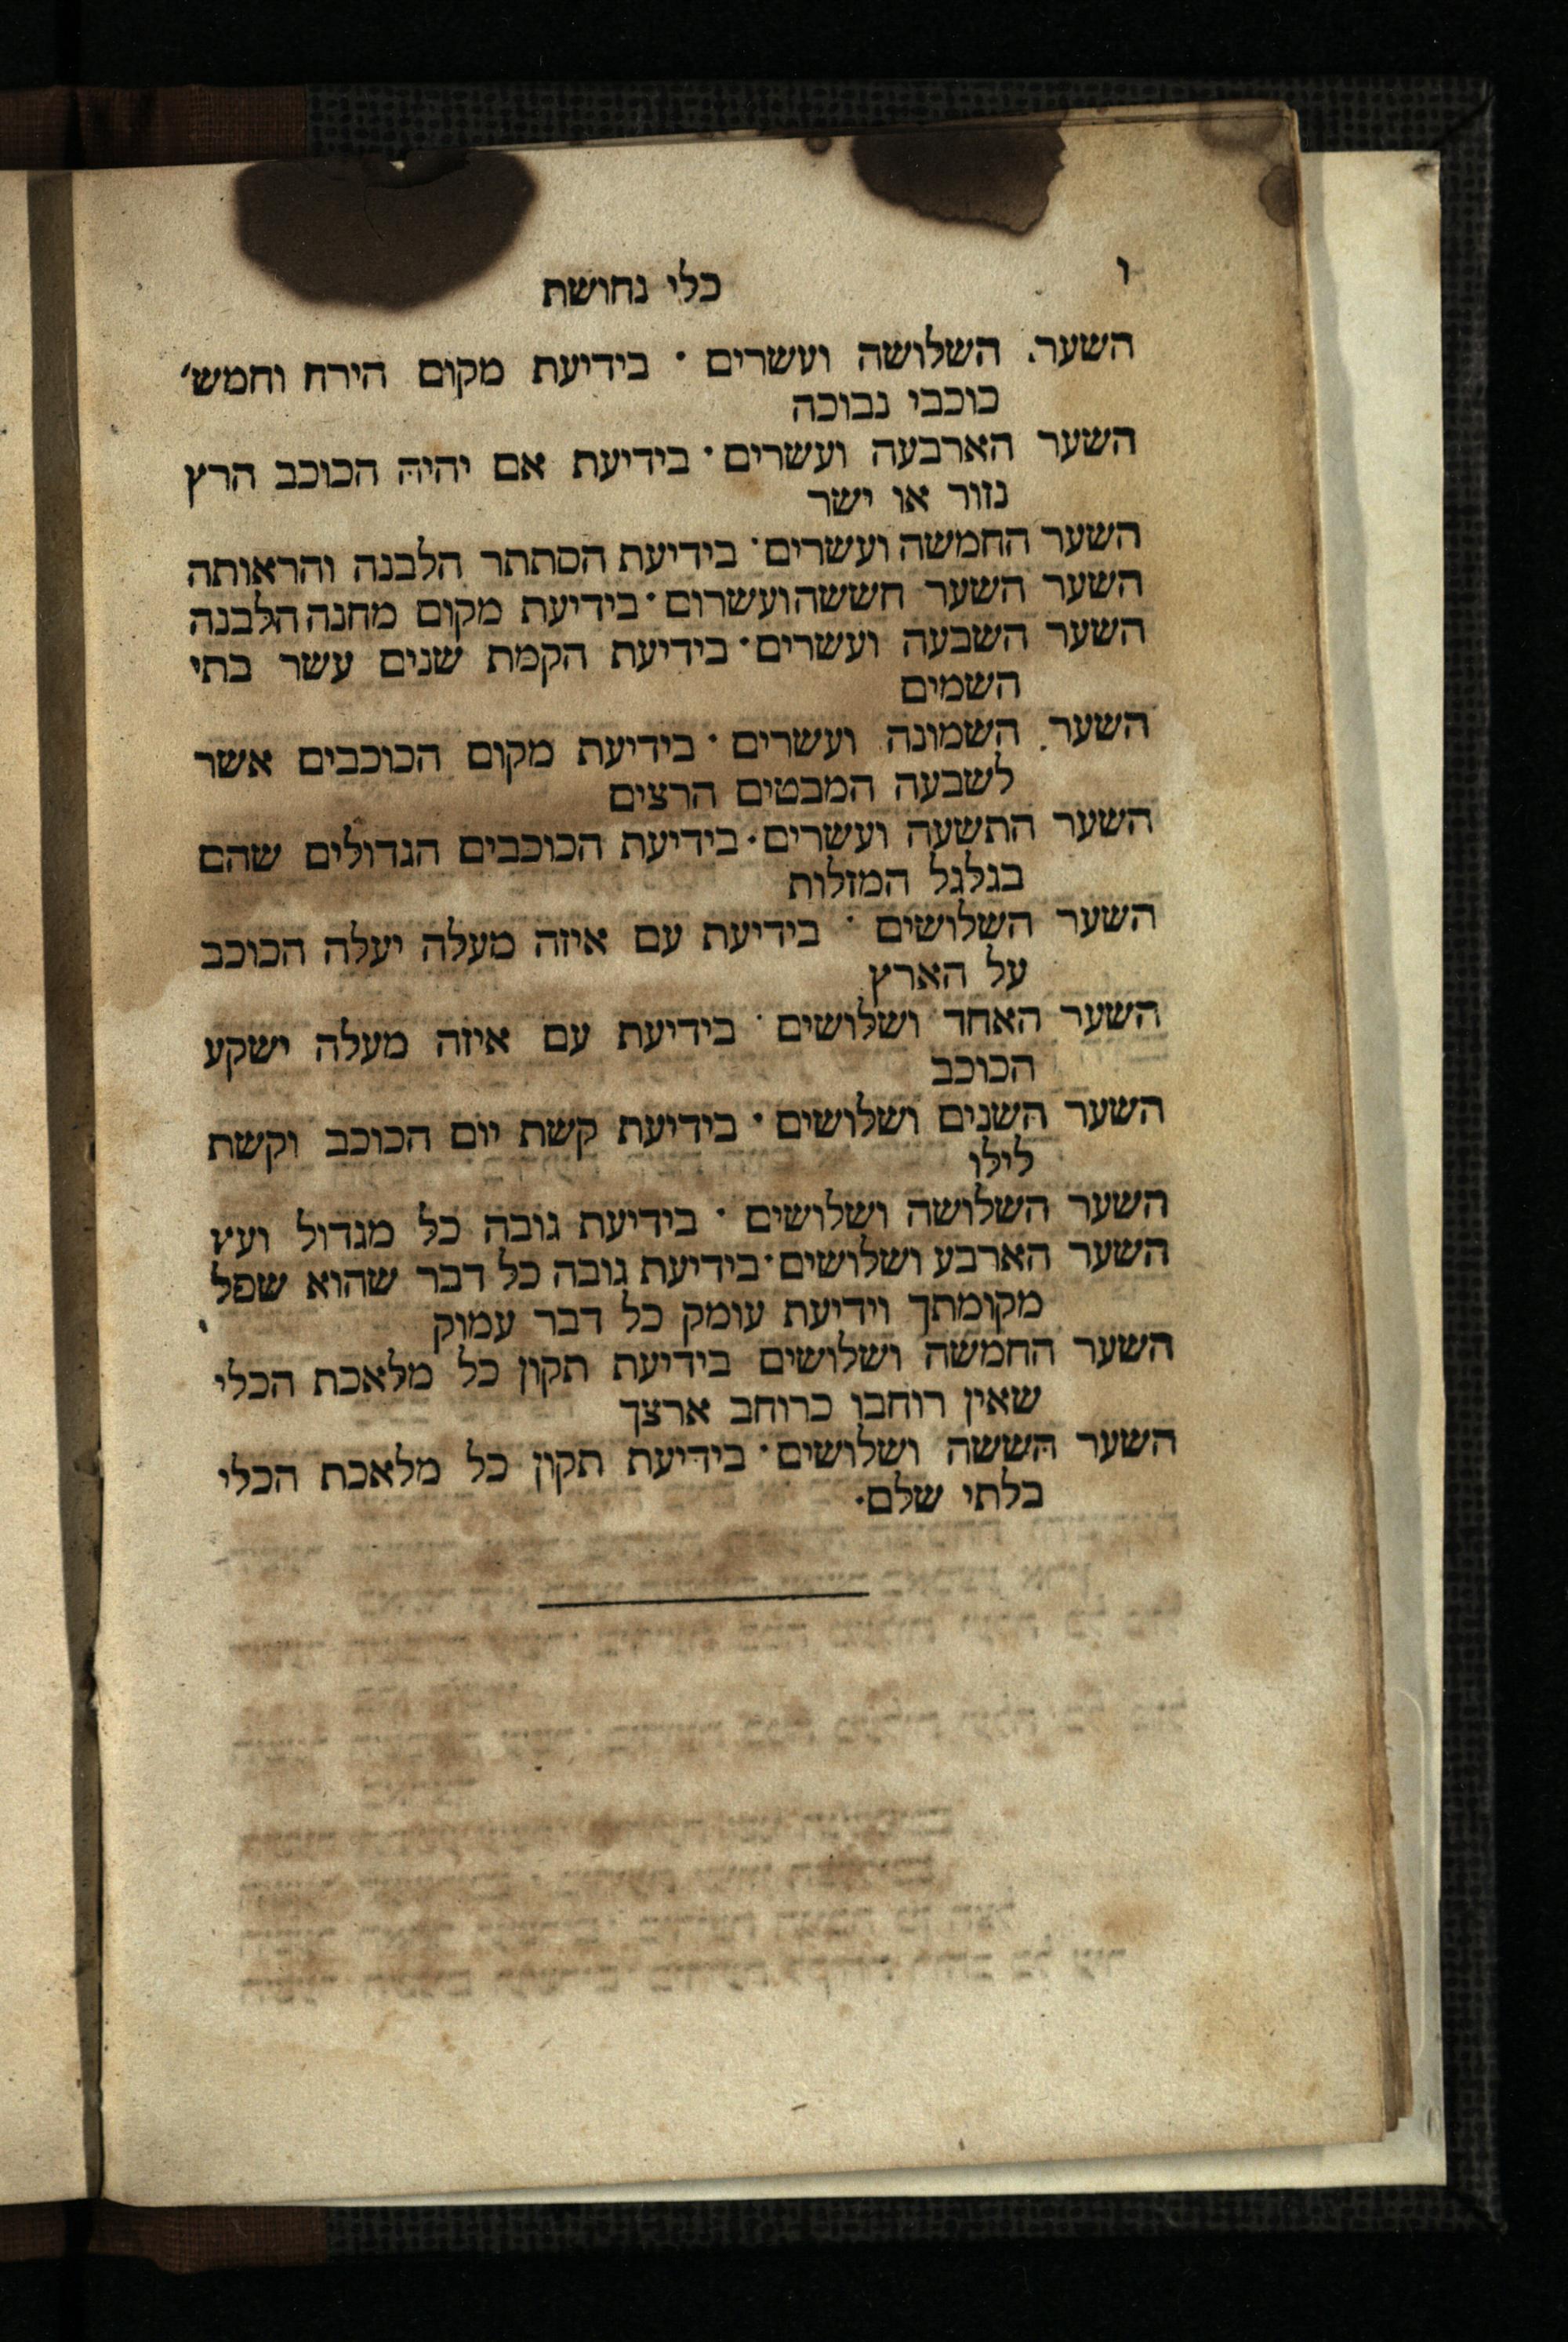 ו
כלי נחושת
השער. השלושה ועשרים · בידיעת מקום הירח וחמש׳
כוכבי נבוכה
השער הארבעה ועשרים · בידיעת אם יהיה הכוכב הרץ
נזור או ישר
השער החמשה ועשרים · בידיעת הסתתר הלבנה והראותה
השער השער חששהועשרום · בידיעת מקום מחנה הלבנה
השער השבעה ועשרים · בידיעת הקמת שנים עשר בתי
השמים
השער. השמונה ועשרים · בידיעת מקום הכוכבים אשר
לשבעה המבטים הרצים
השער התשעה ועשרים · בידיעת הכוכבים הגדולים שהם
בגלגל המזלות
השער השלושים · בידיעת עם איזה מעלה יעלה הכוכב
על הארץ
השער האחד ושלושים · בידיעת עם איזה מעלה ישקע
הכוכב
השער השנים ושלושים · בידיעת קשת יום הכוכב וקשת
לילו
השער השלושה ושלושים · בידיעת גובה כל מגדול ועץ
השער הארבע ושלושים · בידיעת גובה כל דבר שהוא שפל
מקומתך וידיעת עומק כל דבר עמוק
השער החמשה ושלושים בידיעת תקון כל מלאכת הכלי
שאין רוחבו כרוחב ארצך
השער הששה ושלושים · בידיעת תקון כל מלאכת הכלי
בלתי שלם·